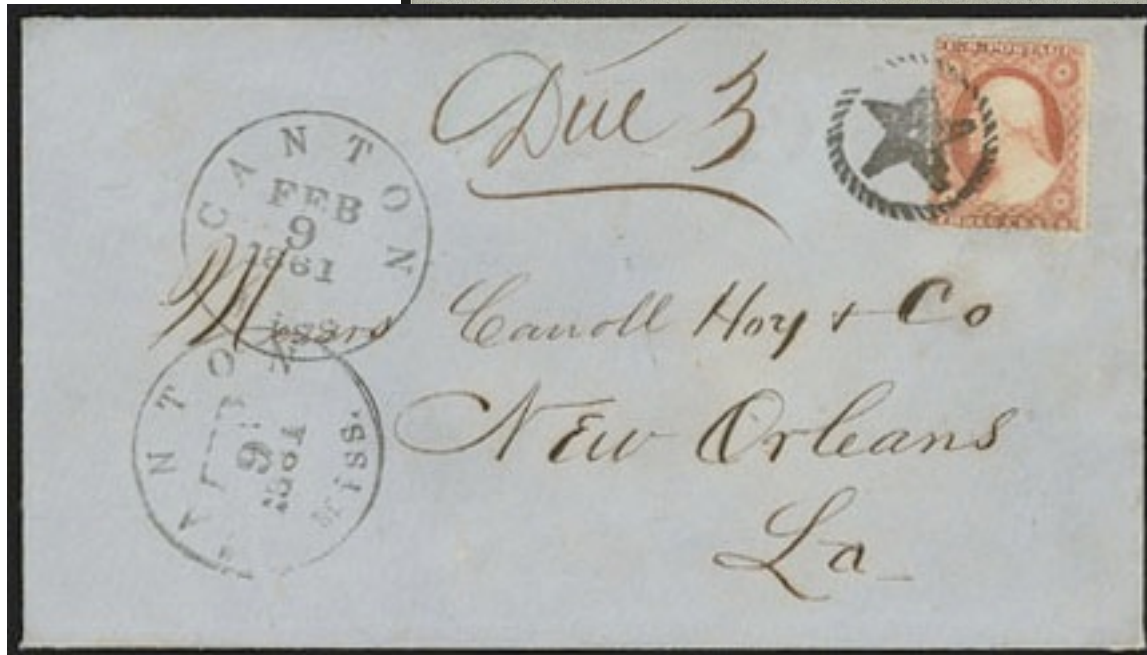 Due 3
CANTON
FEB
9
1861
Miss.
Messrs Carroll Hoy & Co
New Orleans
La
CANTON
FEB
9
1861
Miss.